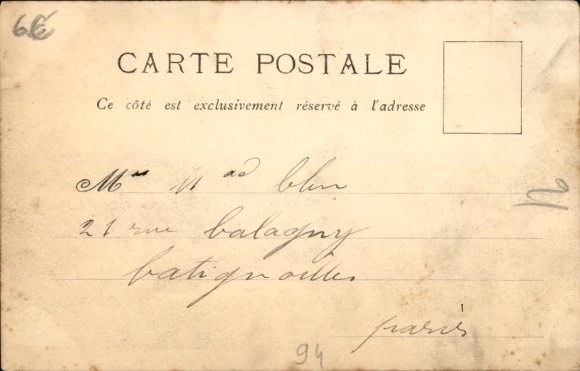 6€
CARTE POSTALE
Ce côté est exclusivement réservé à l'adresse
21 rue balagny
batignolles
paris
94